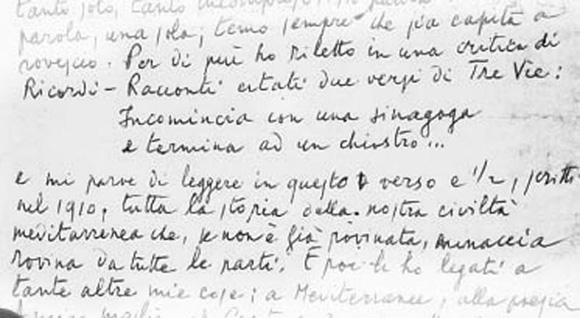 tanto solo, tanto
parola, una sola; temo sempre che sia capita a
rovescio. Per di più ho riletto in una critica di
Ricordi - Racconti citati due versi di Tre Vie:
Incomincia con una sinagoga
e termina ad un chiostro...
e mi parve di leggere in questo verso e 1/2, scritti
nel 1910, tutta la storia della nostra civiltà
mediterranea che, se non è già rovinata, minaccia
rovina da tutte le parti. E poi li ho legati a
tante altre mie cose; a Mediterranee, alla poesia